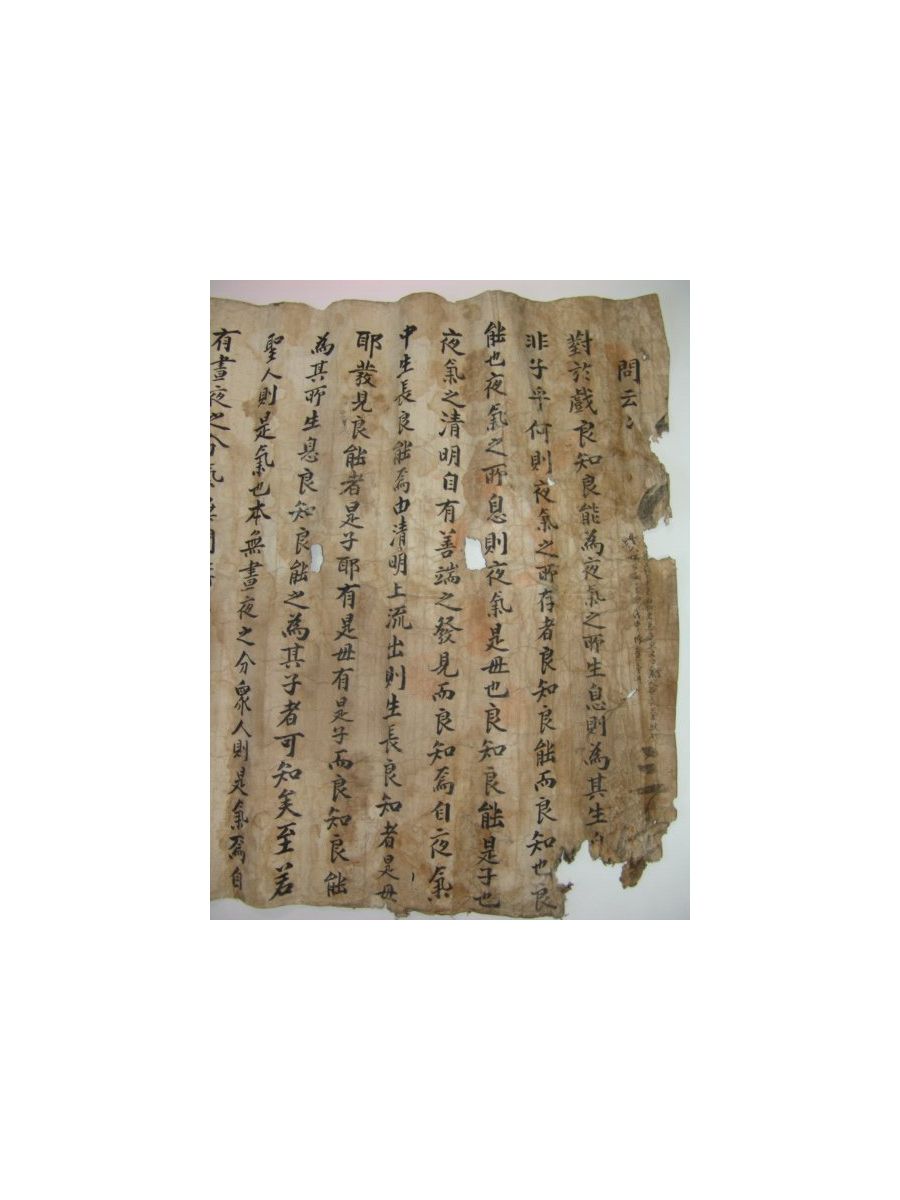 問云々
對於戯良知良能為夜氣之所生息則為其生
非子乎何則夜氣之所存者良知良能而良知也良
能也夜氣之所息則夜氣是母也良知良能是子也
夜氣之清明自有善端之發見而良知焉自夜氣
中生長良能焉由清明上流出則生長良知者是母
耶發見良能者是子耶有是母有是子而良知良能
為其所生息良知良能之為其子者可知矣至若
聖人則是氣也本無晝夜之分衆人則是氣焉自
有晝夜之分氣